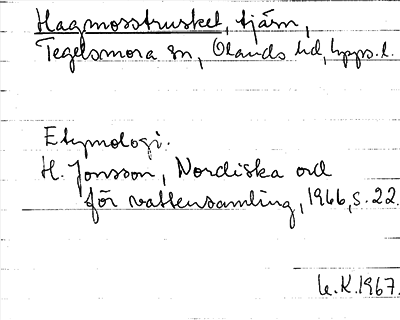 Hagmosstrusket, tjärn,
Tegelsmora sn, Olands hd, Upps. l.
Etymologi.
H. Jonsson, Nordiska ord
för vattensamling, 1966, s. 22.
K. 1967.